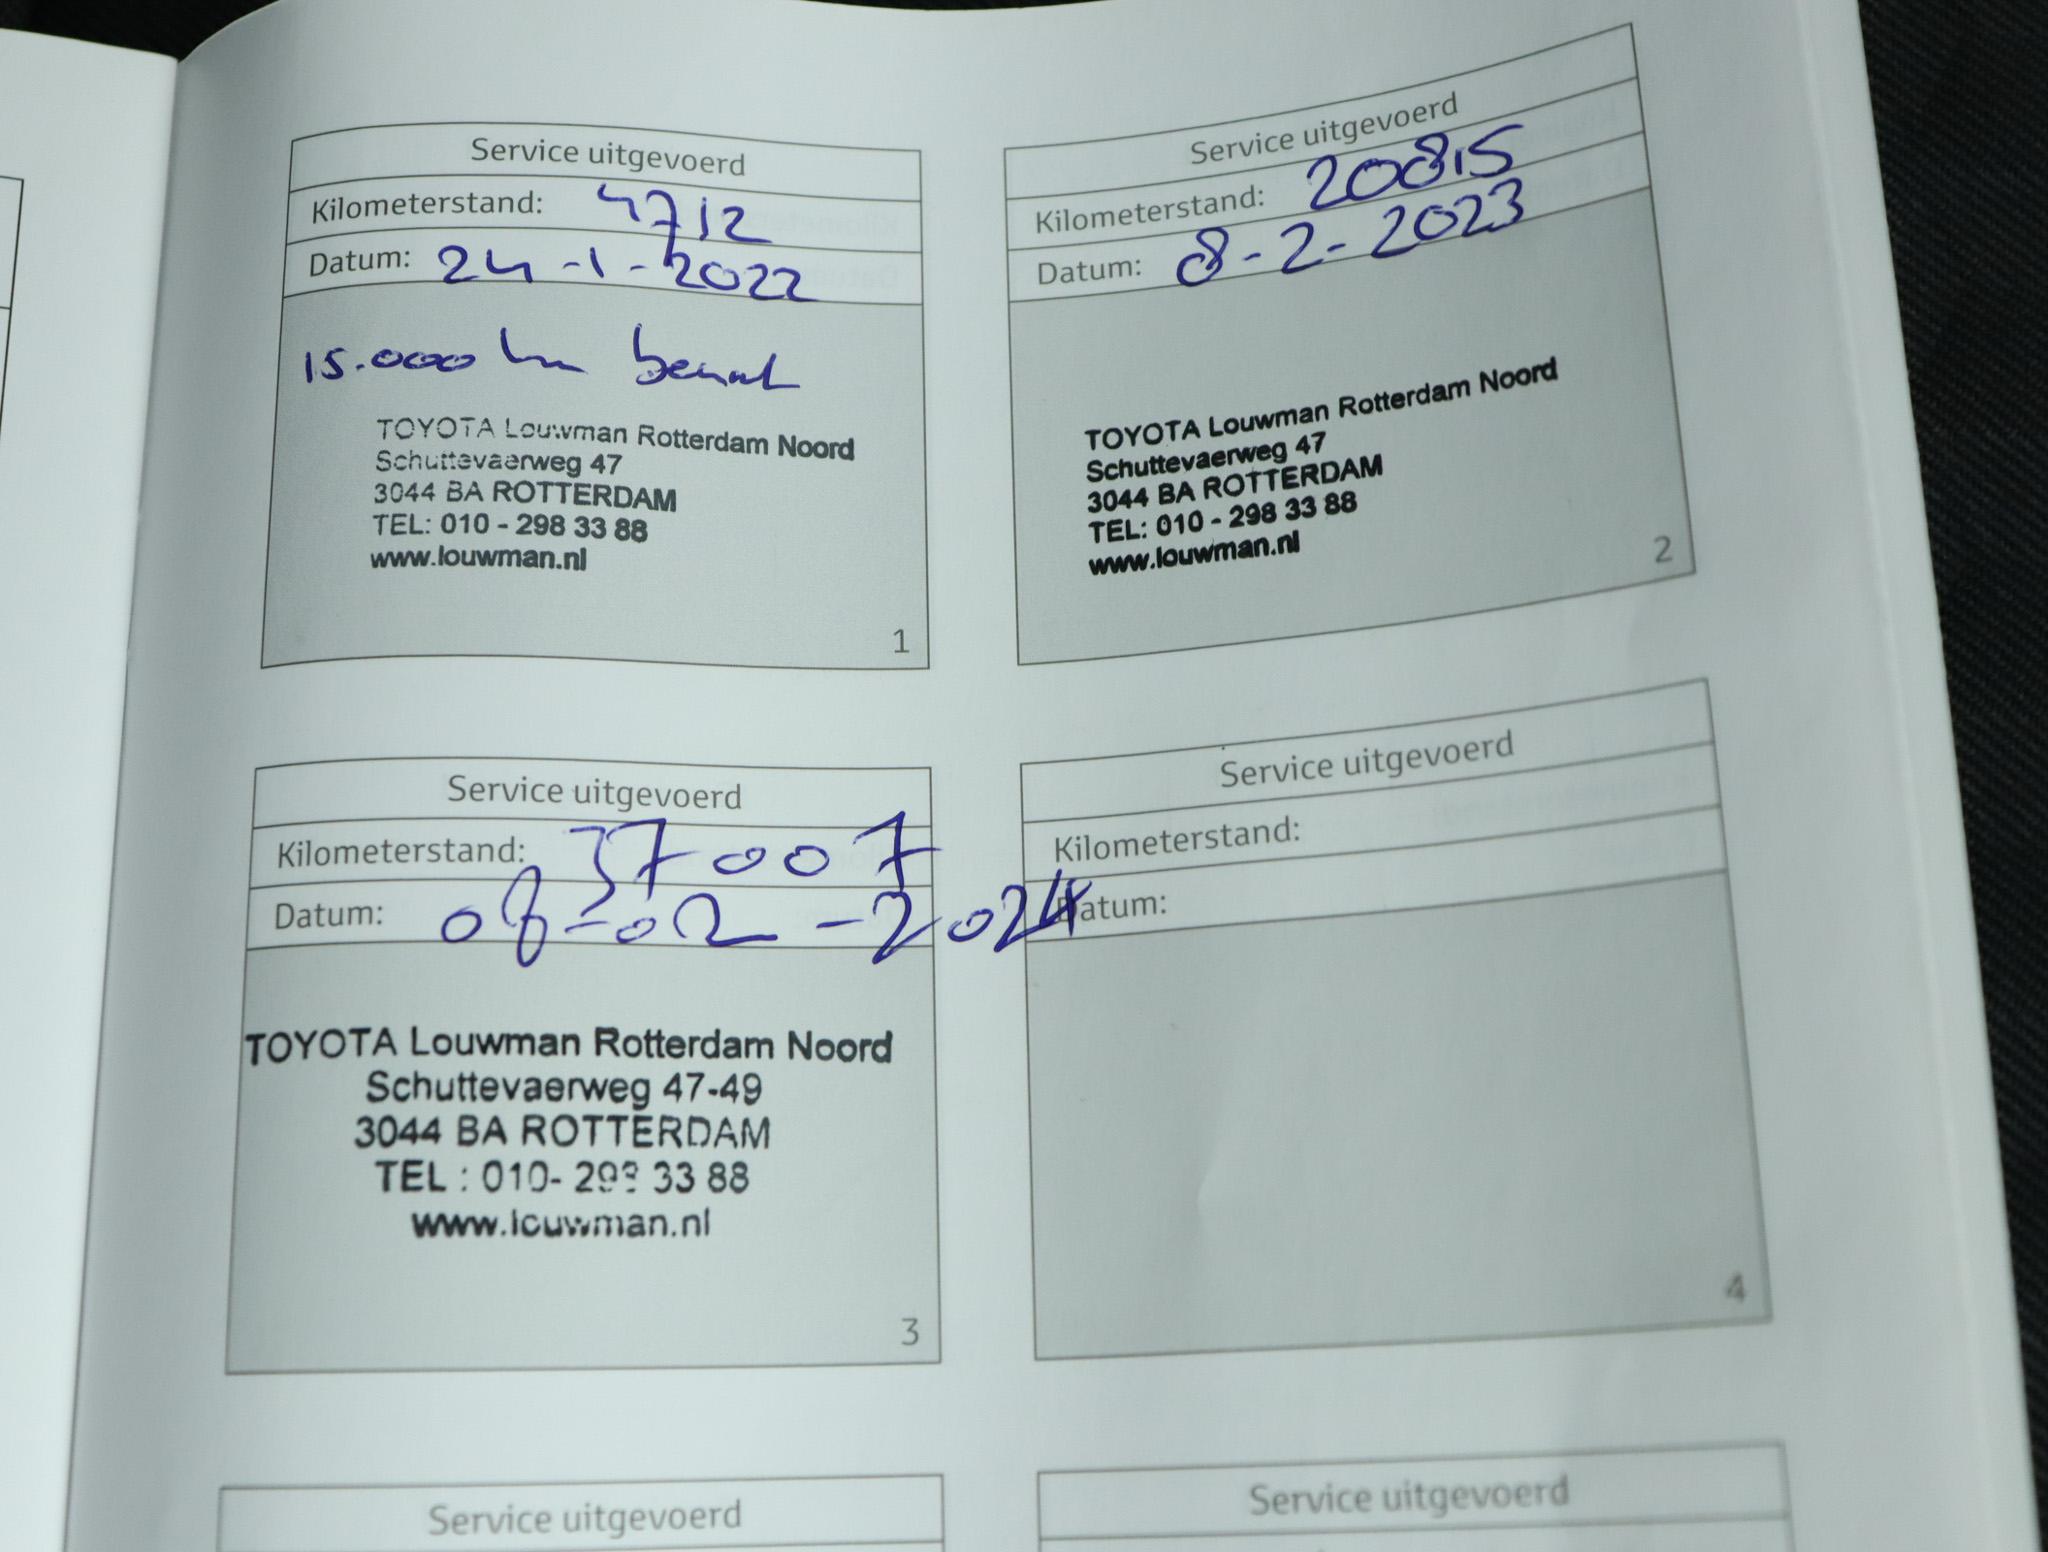 Service uitgevoerd
Kilometerstand: 4712
Datum: 24-1-2022
15.000 km beurt
TOYOTA Louwman Rotterdam Noord
Schuttevaerweg 47
3044 BA ROTTERDAM
TEL: 010 - 298 33 88
www.louwman.nl
1
Service uitgevoerd
Kilometerstand: 20815
Datum: 8-2-2023
TOYOTA Louwman Rotterdam Noord
Schuttevaerweg 47
3044 BA ROTTERDAM
TEL: 010 - 298 33 88
www.louwman.nl
2
Service uitgevoerd
Kilometerstand: 37007
Datum: 08-02-2024
TOYOTA Louwman Rotterdam Noord
Schuttevaerweg 47-49
3044 BA ROTTERDAM
TEL : 010- 298 33 88
www.louwman.nl
3
Service uitgevoerd
Kilometerstand:
Datum:
4
Service uitgevoerd
Service uitgevoerd